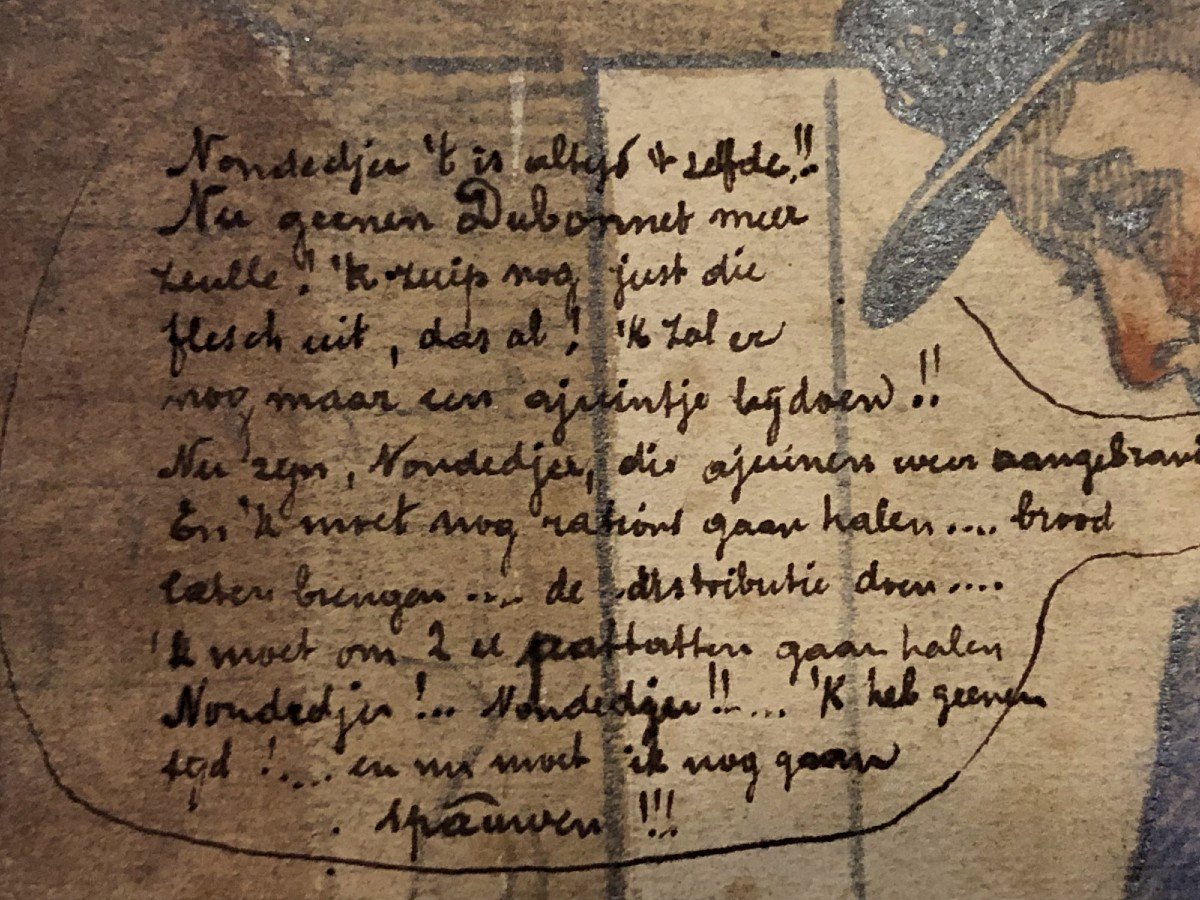 Nondedjer 't is altyd 't zelfde!!
Nu geenen Dubonnet meer
zeulle! 'k zuip nog just die
flesch uit, das al! 'k zal er
nog maar een ajuintje bijdoen!!
Nu zyn, Nondedjer, die ajuinen weer aangebrand
En 'k moet nog rations gaan halen.... brood
laten brengen.... de distributie doen....
'k moet om 2 u pattatten gaan halen
Nondedjer!.. Nondedjer!!... 'K heb geenen
tyd!.... en nu moet ik nog gaan
spāuwen!!!